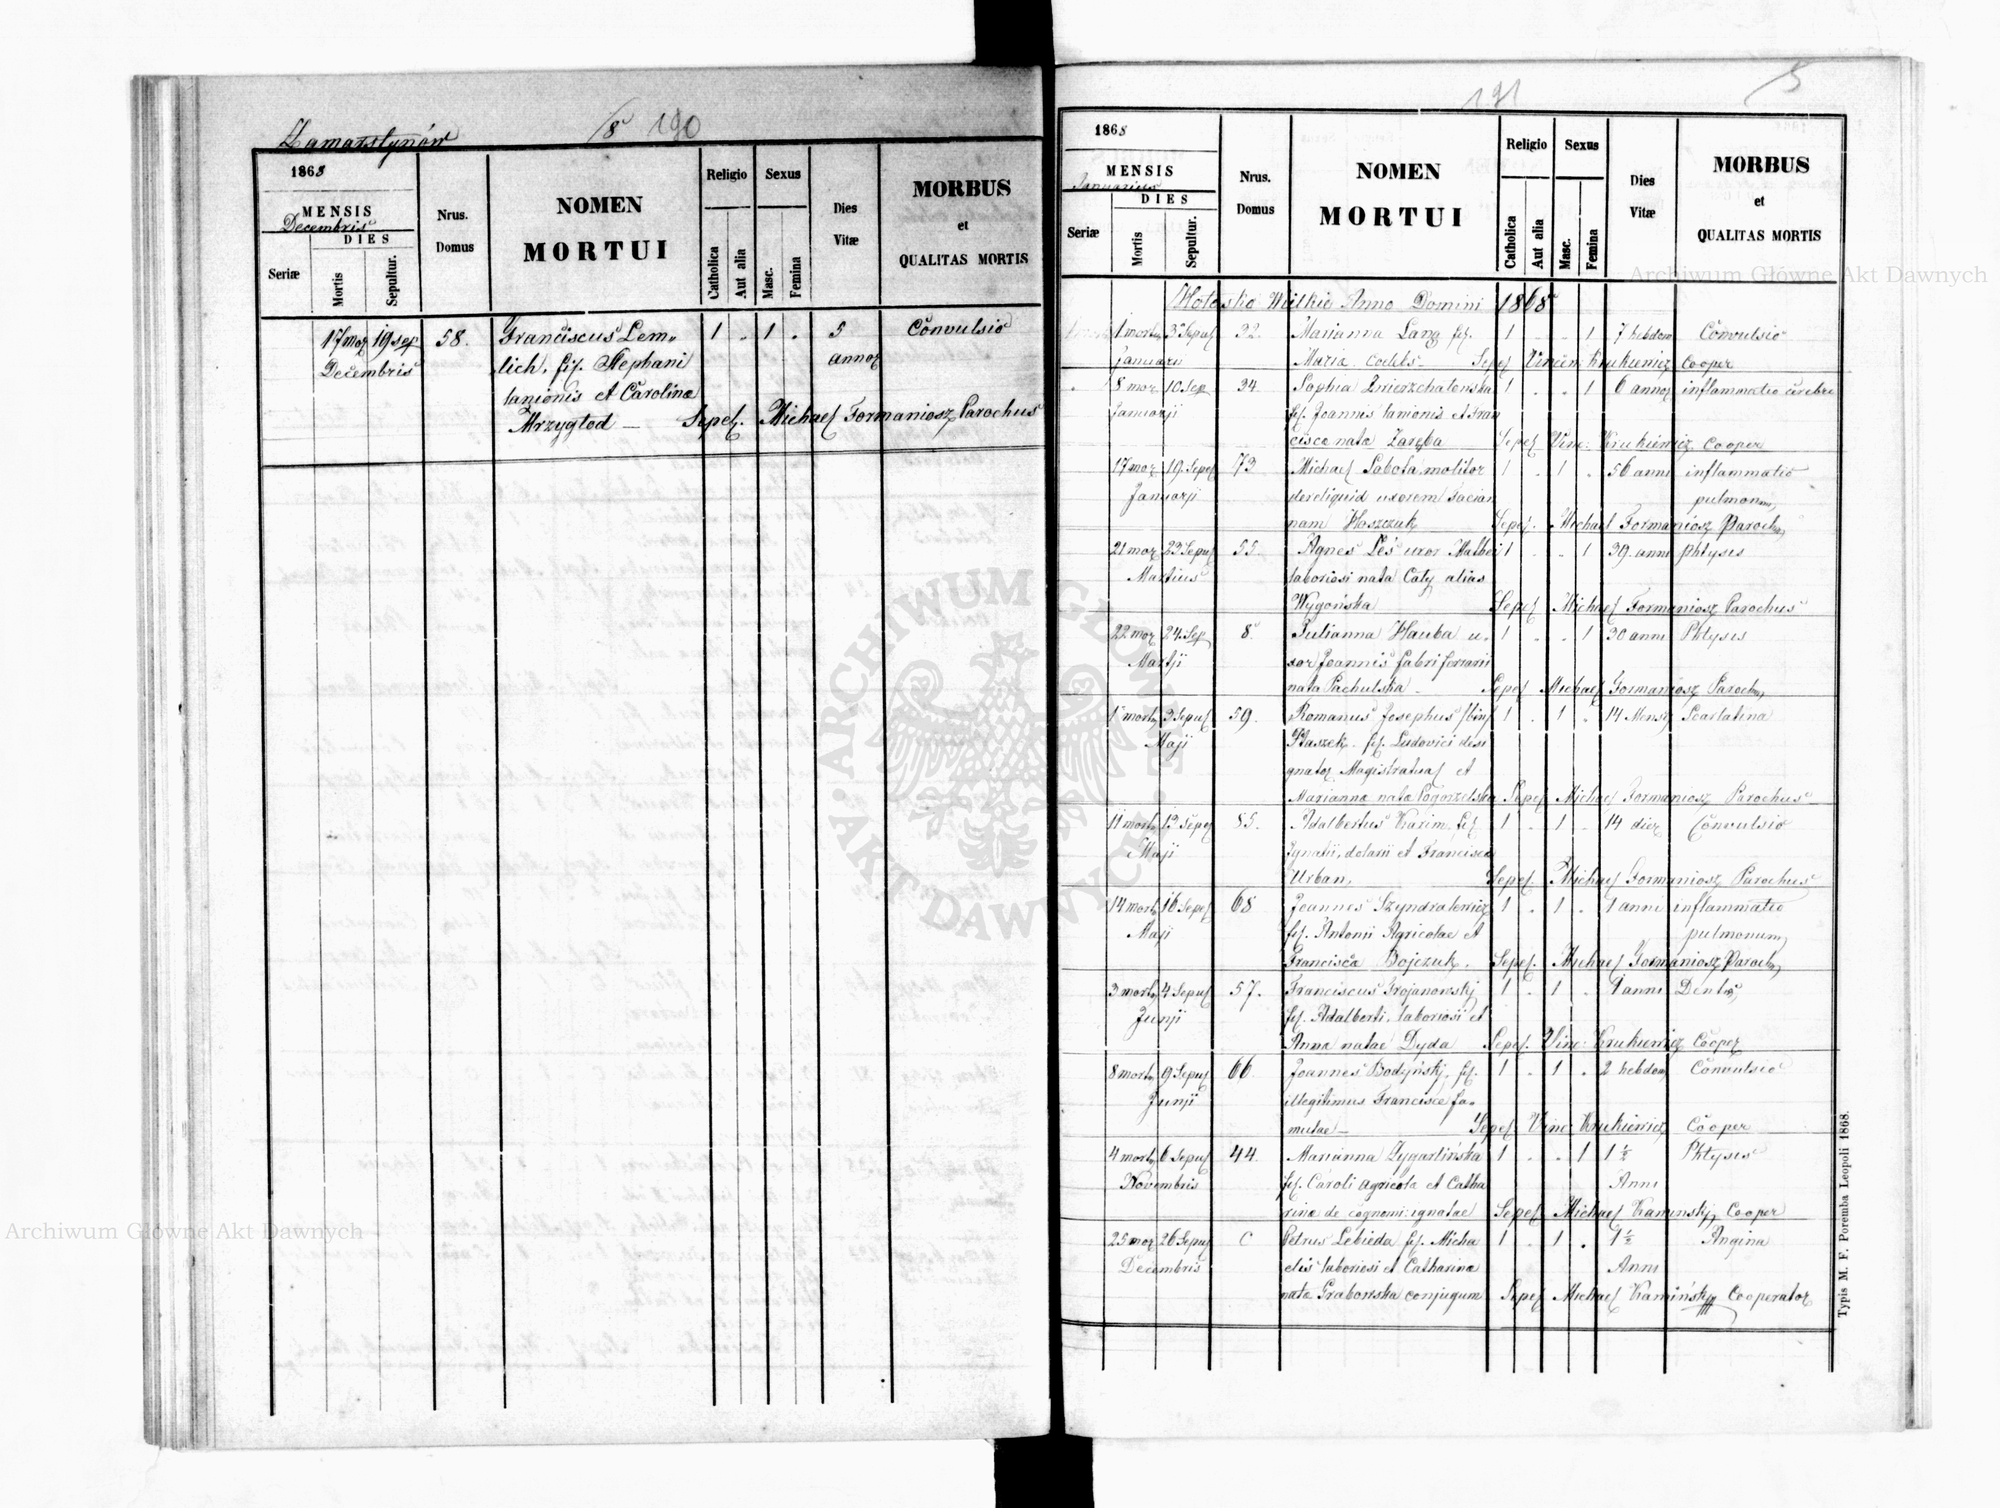 Zamarstynów
8 190
1868
MENSIS
Decembris
DIES
Seriæ
Mortis
Sepultur.
Nrus.
Domus
NOMEN
MORTUI
Religio
Catholica
Aut alia
Sexus
Masc.
Femina
Dies
Vitæ
MORBUS
et
QUALITAS MORTIS
17 mor 19 sep 58. Franciscus Lem- 1 . 1 . 5 Convulsio
Decembris lich, fil. Stephani annor
lanionis et Carolinæ
Mrzygłod — Sepel. Michael Formaniosz Parochus
191
5
1868
MENSIS
Januarius
DIES
Seriæ
Mortis
Sepultur.
Nrus.
Domus
NOMEN
MORTUI
Religio
Catholica
Aut alia
Sexus
Masc.
Femina
Dies
Vitæ
MORBUS
et
QUALITAS MORTIS
Hołosko Wielkie Anno Domini 1868
1 mort 3 Sepul 32. Marianna Lang fil. 1 . . 1 7 hebdom Convulsio
Januarii Maria coelebs - Sepel Vincen Krukiewicz Cooper
8 mor 10 Sep 34 Sophia 1 . . 1 6 annor inflammatio cerebri
Januarji fil. Joannis lanionis et Fran
cisca nata Zaręba Sepel Vinc: Krukiewicz Cooper
17 mor 19 Sepel 73 Michael Sobota molitor 1 . 1 . 56 anni inflammatio
Januarji uxorem pulmonum
nam Sepel. Michael Formaniosz Paroch
21 mor 23 Sepul 55 Agnes Leś uxor 1 . . 1 39. anni phtysis
Martius laboriosi nata Caty alias
Wygońska Sepel Michael Formaniosz Parochus
22 mor 24 Sep 8 Julianna Hauba u- 1 . . 1 30 anni Phtysis
Martji xor Joannis fabri ferrarii
nata Pachulska - Sepel Michael Formaniosz Paroch
1 mort 3 Sepul 59. Romanus Josephus 1 . 1 . 14 Mens Scarlatina
Maji fil. Ludovici desi
gnator Magistratual et
Marianna nata Pogorzelska Sepel Michael Formaniosz Parochus
11 mort 13 Sepel 85. Adalbertus Karim fil 1 . 1 . 14 dier Convulsio
Maji Ignatii, dolarii et Francisca
Urban, Sepel. Michael Formaniosz Parochus
14 mort 16 Sepel 68 Joannes Szyndralewicz 1 . 1 . 1 anni inflammatio
Maji fil. Antonji Agricolae et pulmonum
Francisca Bojczuk. Sepel. Michael Formaniosz Paroch
3 mort 4 Sepul 57. Franciscus Trojanowskj 1 . 1 . 1 anni
Junji fil. Adalberti, laboriosi et
Anna natae Dyda Sepel. Vinc: Krukiewicz Cooper
8 mort 9 Sepul 66. Joannes Bodyńskj, fil. 1 . 1 . 2 hebdom Convulsio
Junji illegitimus Francisce fa-
mulae — Sepel Vinc Krukiewicz Cooper
4 mort 6 Sepul 44. Marianna Zygarlińska 1 . . 1 1 ½ Phtysis
Novembris fil. Caroli agricola et Catha Anni
rina de cognomi: ignatae Sepel. Michael Kaminskj, Cooper
25 mor 26 Sepul C Petrus Lebieda fil. Micha 1 . 1 . 1 ½ Angina
Decembris elis laboriosi et Catharina Anni
nata Grabowska conjugum Sepel Michael Kamińskj Cooperator
Typis M. F. Poremba Leopoli 1868.
Archiwum Główne Akt Dawnych
Archiwum Główne Akt Dawnych
ARCHIWUM GŁÓWNE
AKT DAWNYCH